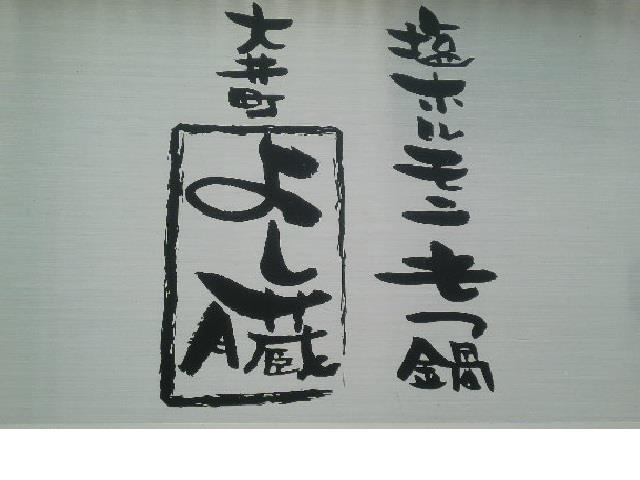 塩ホルモン もつ鍋
大井町
よし蔵